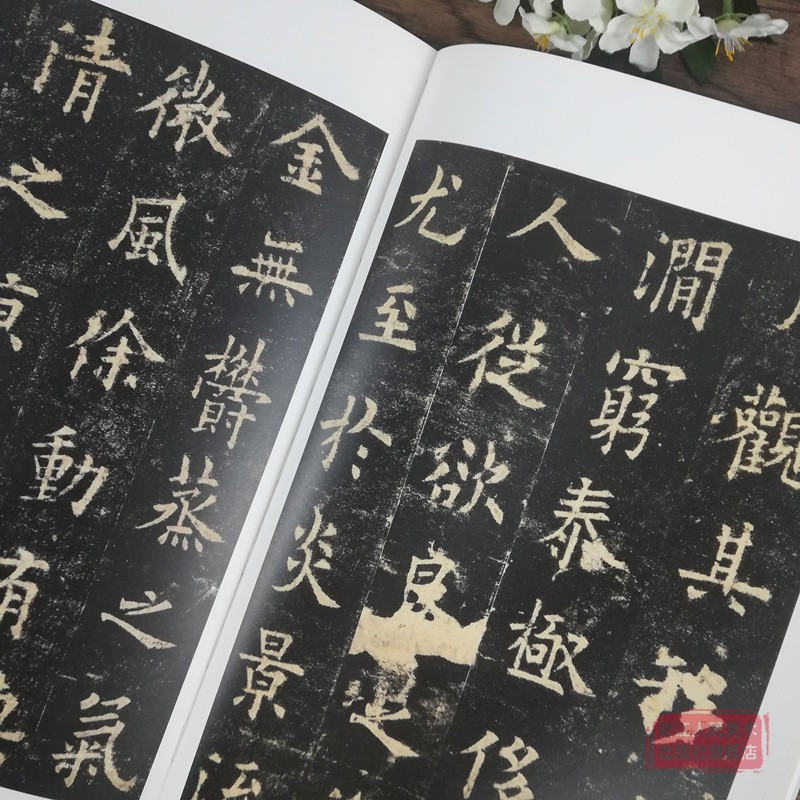 觀其移
澗窮泰極侈
人從欲良足
尤至於炎景流
金無欝蒸之氣
微風徐動有
清之